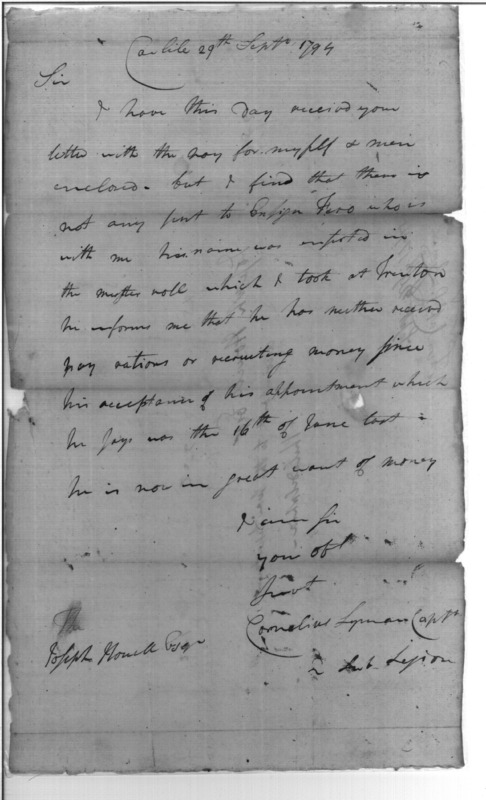 Carlile 29th Sept 1794
Sir
I have this Day received your
letter with the pay for myself & men
enclosed. but I find that there is
not any sent to Ensign Fero who is
with me his name was inserted in
the muster roll which I took at Trenton
he informs me that he has neither received
pay rations or recruiting money since
his acceptance of his appointment which
he says was the 16th of June last
he is now in great want of money
I am Sir
your obt
Servt
Cornelius Lyman Capt
Sub Legion
Joseph Howell Esqr